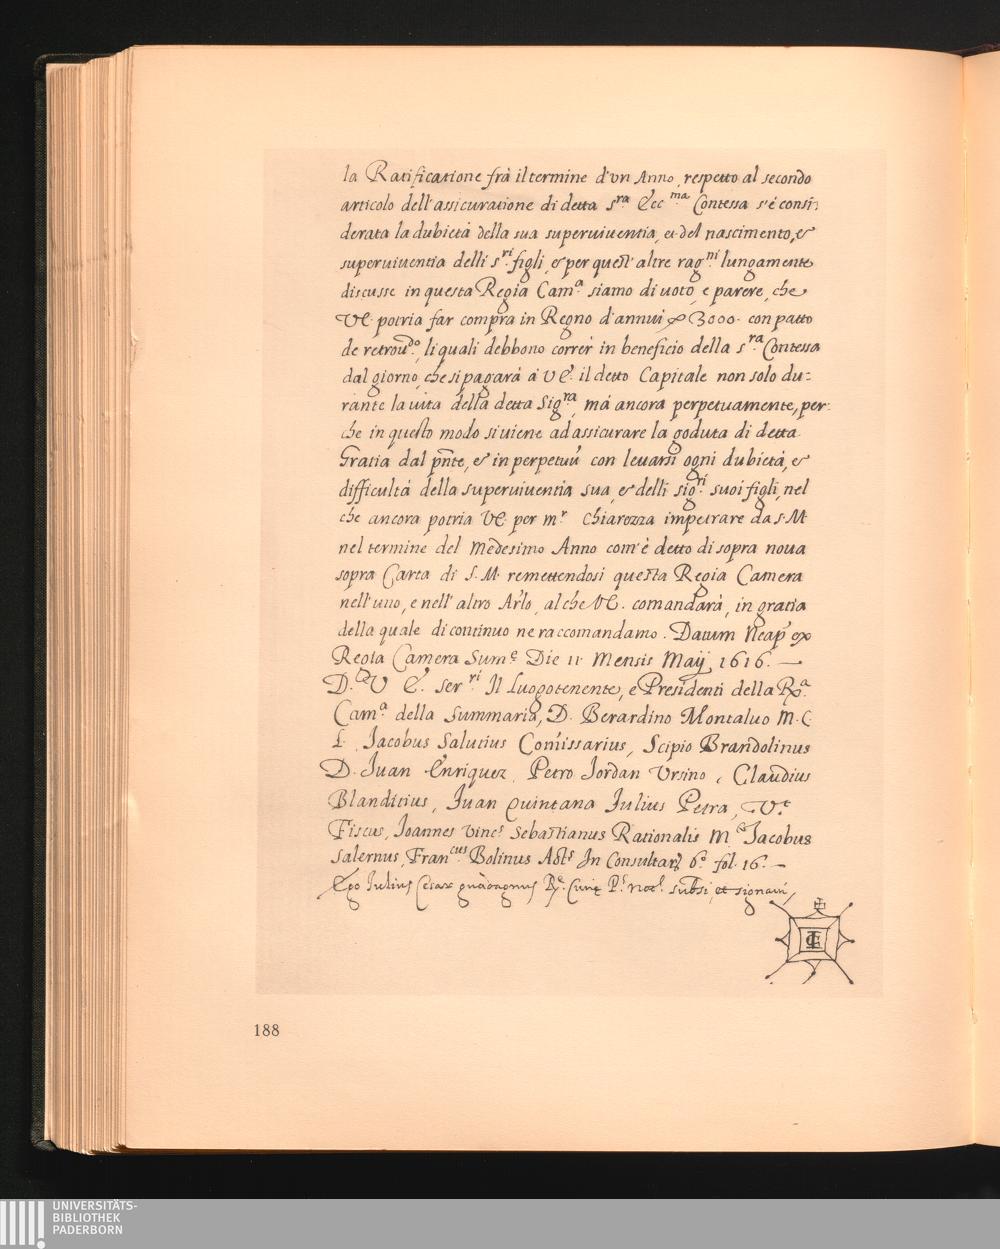 la Ratificatione frà il termine d'vn Anno, respetto al secondo
articolo dell'assicuratione di detta s.ra Ecc.ma Contessa s'è consi-
derata la dubietà della sua superuiuentia, et del nascimento, e
superuiuentia delli s.ri figli, e per quest'altre rag.ni lungamente
discusse in questa Regia Cam.a siamo di uoto, e parere, che
VE. potria far compra in Regno d'annui 3000. con patto
de retrou.do, li quali debbono correr in beneficio della s.ra Contessa
dal giorno, che si pagarà à VE. il detto Capitale non solo du-
rante la uita della detta Sig.ra, mà ancora perpetuamente, per-
che in questo modo si uiene ad assicurare la goduta di detta
Gratia dal pnte, e in perpetuũ con leuarsi ogni dubietà, e
difficultà della superuiuentia sua, e delli sig.ri suoi figli, nel
che ancora potria VE. per m.r chiarezza impetrare da S.M.
nel termine del medesimo Anno com'è detto di sopra noua
sopra Carta di S.M. remettendosi questa Regia Camera
nell'uno, e nell'altro Arlo, al che VE. comandarà, in gratia
della quale di continuo ne raccomandamo. Datum Neap ex
Regia Camera Sum.e Die 11 Mensis Maij 1616. —
D. V. E. Ser.ri Il Luogotenente, e Presidenti della R.a
Cam.a della Summaria, D. Berardino Montaluo M.C.
L. Jacobus Salutius Comissarius, Scipio Brandolinus
D. Juan Enriquez, Petro Jordan Vrsino, Claudius
Blanditius, Juan Quintana Julius Petra, V.t
Fiscus, Joannes Vinc.s Sebastianus Rationalis M. Jacobus
Salernus, Fran.cus Bolinus Act.s In Consultarũ 6.o fol. 16. —
Ego Julius Cesar subsi, et signaui
188
UNIVERSITÄTS-
BIBLIOTHEK
PADERBORN